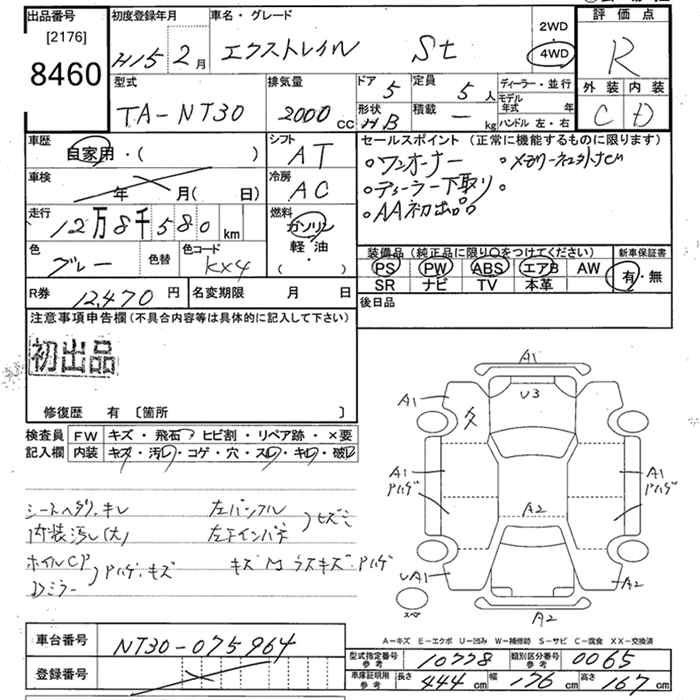 出品番号 初度登録年月 車名・グレード 2WD 4WD 評価点
[2176]
8460 H15 2月 エクストレイル St R
型式 排気量 ドア 5 定員 5人 ディーラー・並行 外装 内装
TA-NT30 2000cc 形状 HB 積載 ー kg モデル年式 年 C D
ハンドル 左・右
車歴 自家用・( ) シフト AT セールスポイント(正常に機能するものに限ります)
車検 年 月( 日) 冷房 AC ワンオーナー
ディーラー下取り
AA初出品
走行 12万8千580km 燃料 ガソリン 軽・油 ( ・ )
色 グレー 色替 色コード KX4
装備品(純正品に限り○をつけてください) 新車保証書
PS PW ABS エアB AW 有・無
SR ナビ TV 本革
R券 12,470円 名変期限 月 日 後日品
注意事項申告欄(不具合内容等は具体的に記入して下さい)
初出品
修復歴 有 〔箇所 〕
検査員 FW キズ・飛石・ヒビ割・リペア跡・×要
記入欄 内装 キズ・汚レ・コゲ・穴・スレ・キレ・破レ
A1
A1 U3
A1 A1
アハゲ アハゲ
A2
UA1 A2
スペア A2
シートヘタリ、キレ
内装汚レ(大)
ホイルCP
Dミラー アハゲ・キズ
A-キズ E-エクボ U-凹み W-補修跡 S-サビ C-腐食 XX-交換済
車台番号 NT30-075964
登録番号
型式指定番号 参考 10778 類別区分番号 参考 0065
車庫証明用 参考 長さ 444cm 幅 176cm 高さ 167cm